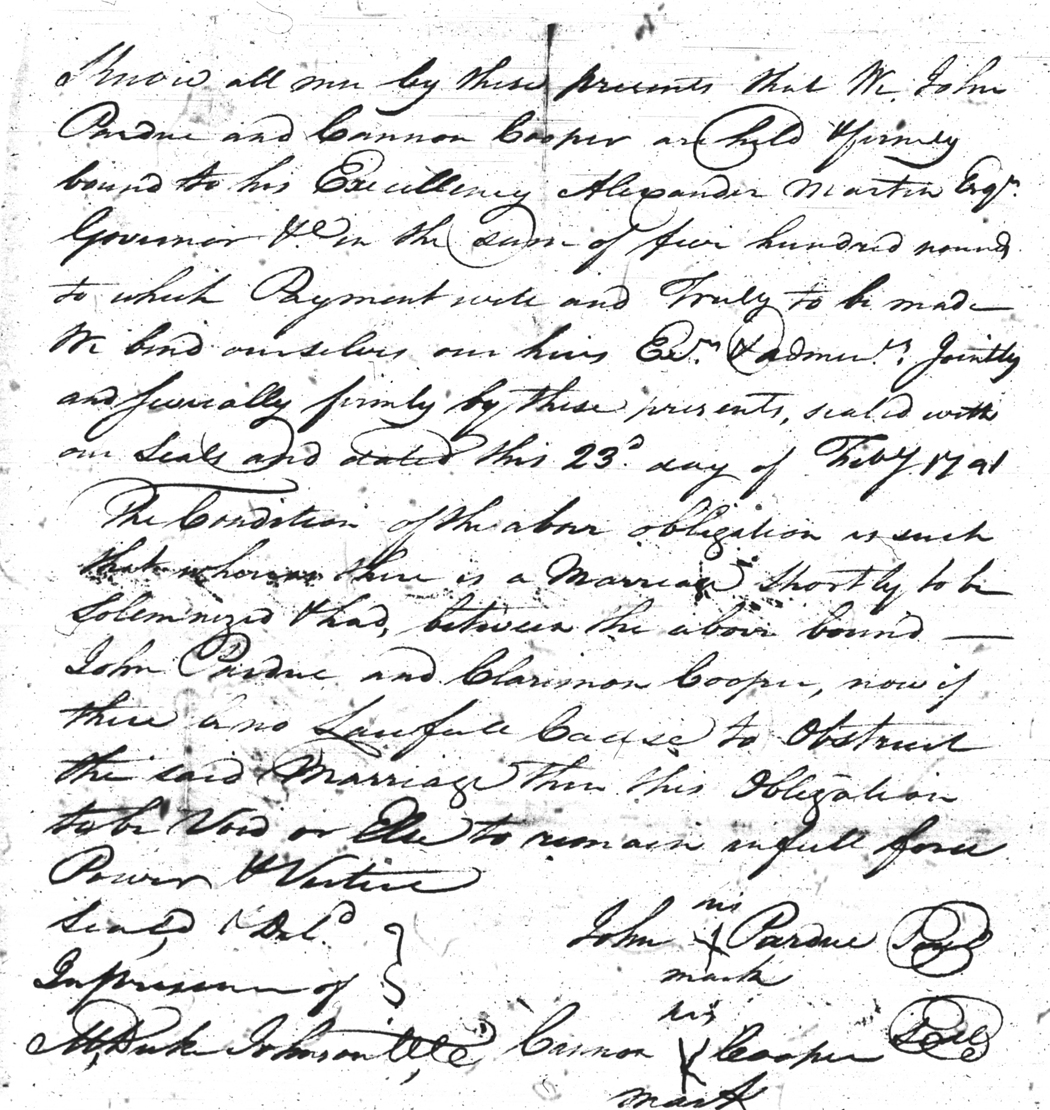 Know all men by these presents that We John
Pardue and Cannon Cooper are held & firmly
bound to his Excellency Alexander Martin Esqr.
Governor &c in the sum of five hundred pounds
to which Payment well and Truly to be made
We bind ourselves our heirs Exrs. & admins. Jointly
and severally firmly by these presents, sealed with
our Seals and dated this 23d. day of Feby 1791
The Condition of the above obligation is such
that whereas there is a Marriage Shortly to be
Solemnized & had, between the above bound —
John Pardue and Clarimon Cooper, now if
there be no Lawfull Cause to Obstruct
the said Marriage then this Obligation
to be Void or Else to remain in full force
Power & Virtue
Seal'd & Deld.
In presence of
John his X mark Pardue Seal
M, Duke Johnson
Cannon his X mark Cooper Seal